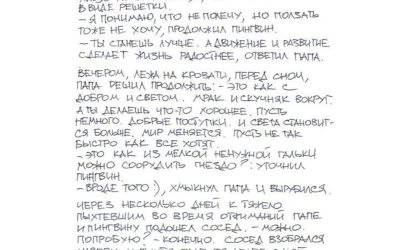 В ВИДЕ РЕШЕТКИ.
– Я ПОНИМАЮ, ЧТО НЕ ПОЛЕЧУ, НО ПОЛЗАТЬ
ТОЖЕ НЕ ХОЧУ, ПРОДОЛЖИЛ ПИНГВИН.
– ТЫ СТАНЕШЬ ЛУЧШЕ. А ДВИЖЕНИЕ И РАЗВИТИЕ
СДЕЛАЕТ ЖИЗНЬ РАДОСТНЕЕ, ОТВЕТИЛ ПАПА.
ВЕЧЕРОМ, ЛЕЖА НА КРОВАТИ, ПЕРЕД СНОМ,
ПАПА РЕШИЛ ПРОДОЛЖИТЬ: – ЭТО КАК С
ДОБРОМ И СВЕТОМ. МРАК И СКУЧНЯК ВОКРУГ.
А ТЫ ДЕЛАЕШЬ ЧТО-ТО ХОРОШЕЕ. ПУСТЬ
НЕМНОГО. ДОБРЫЕ ПОСТУПКИ. И СВЕТА СТАНОВИТ-
СЯ БОЛЬШЕ. МИР МЕНЯЕТСЯ. ПУСТЬ НЕ ТАК
БЫСТРО КАК ВСЕ ХОТЯТ.
– ЭТО КАК ИЗ МЕЛКОЙ НЕНУЖНОЙ ГАЛЬКИ
МОЖНО СООРУДИТЬ ГНЕЗДО? УТОЧНИЛ
ПИНГВИН.
– ВРОДЕ ТОГО :), ХМЫКНУЛ ПАПА И ВЫРУБИЛСЯ.
ЧЕРЕЗ НЕСКОЛЬКО ДНЕЙ К ТЯЖЕЛО
ПЫХТЕВШИМ ВО ВРЕМЯ ОТЖИМАНИЙ ПАПЕ
И ПИНГВИНУ ПОДОШЕЛ СОСЕД. – МОЖНО
ПОПРОБУЮ? – КОНЕЧНО. СОСЕД ВЗОБРАЛСЯ